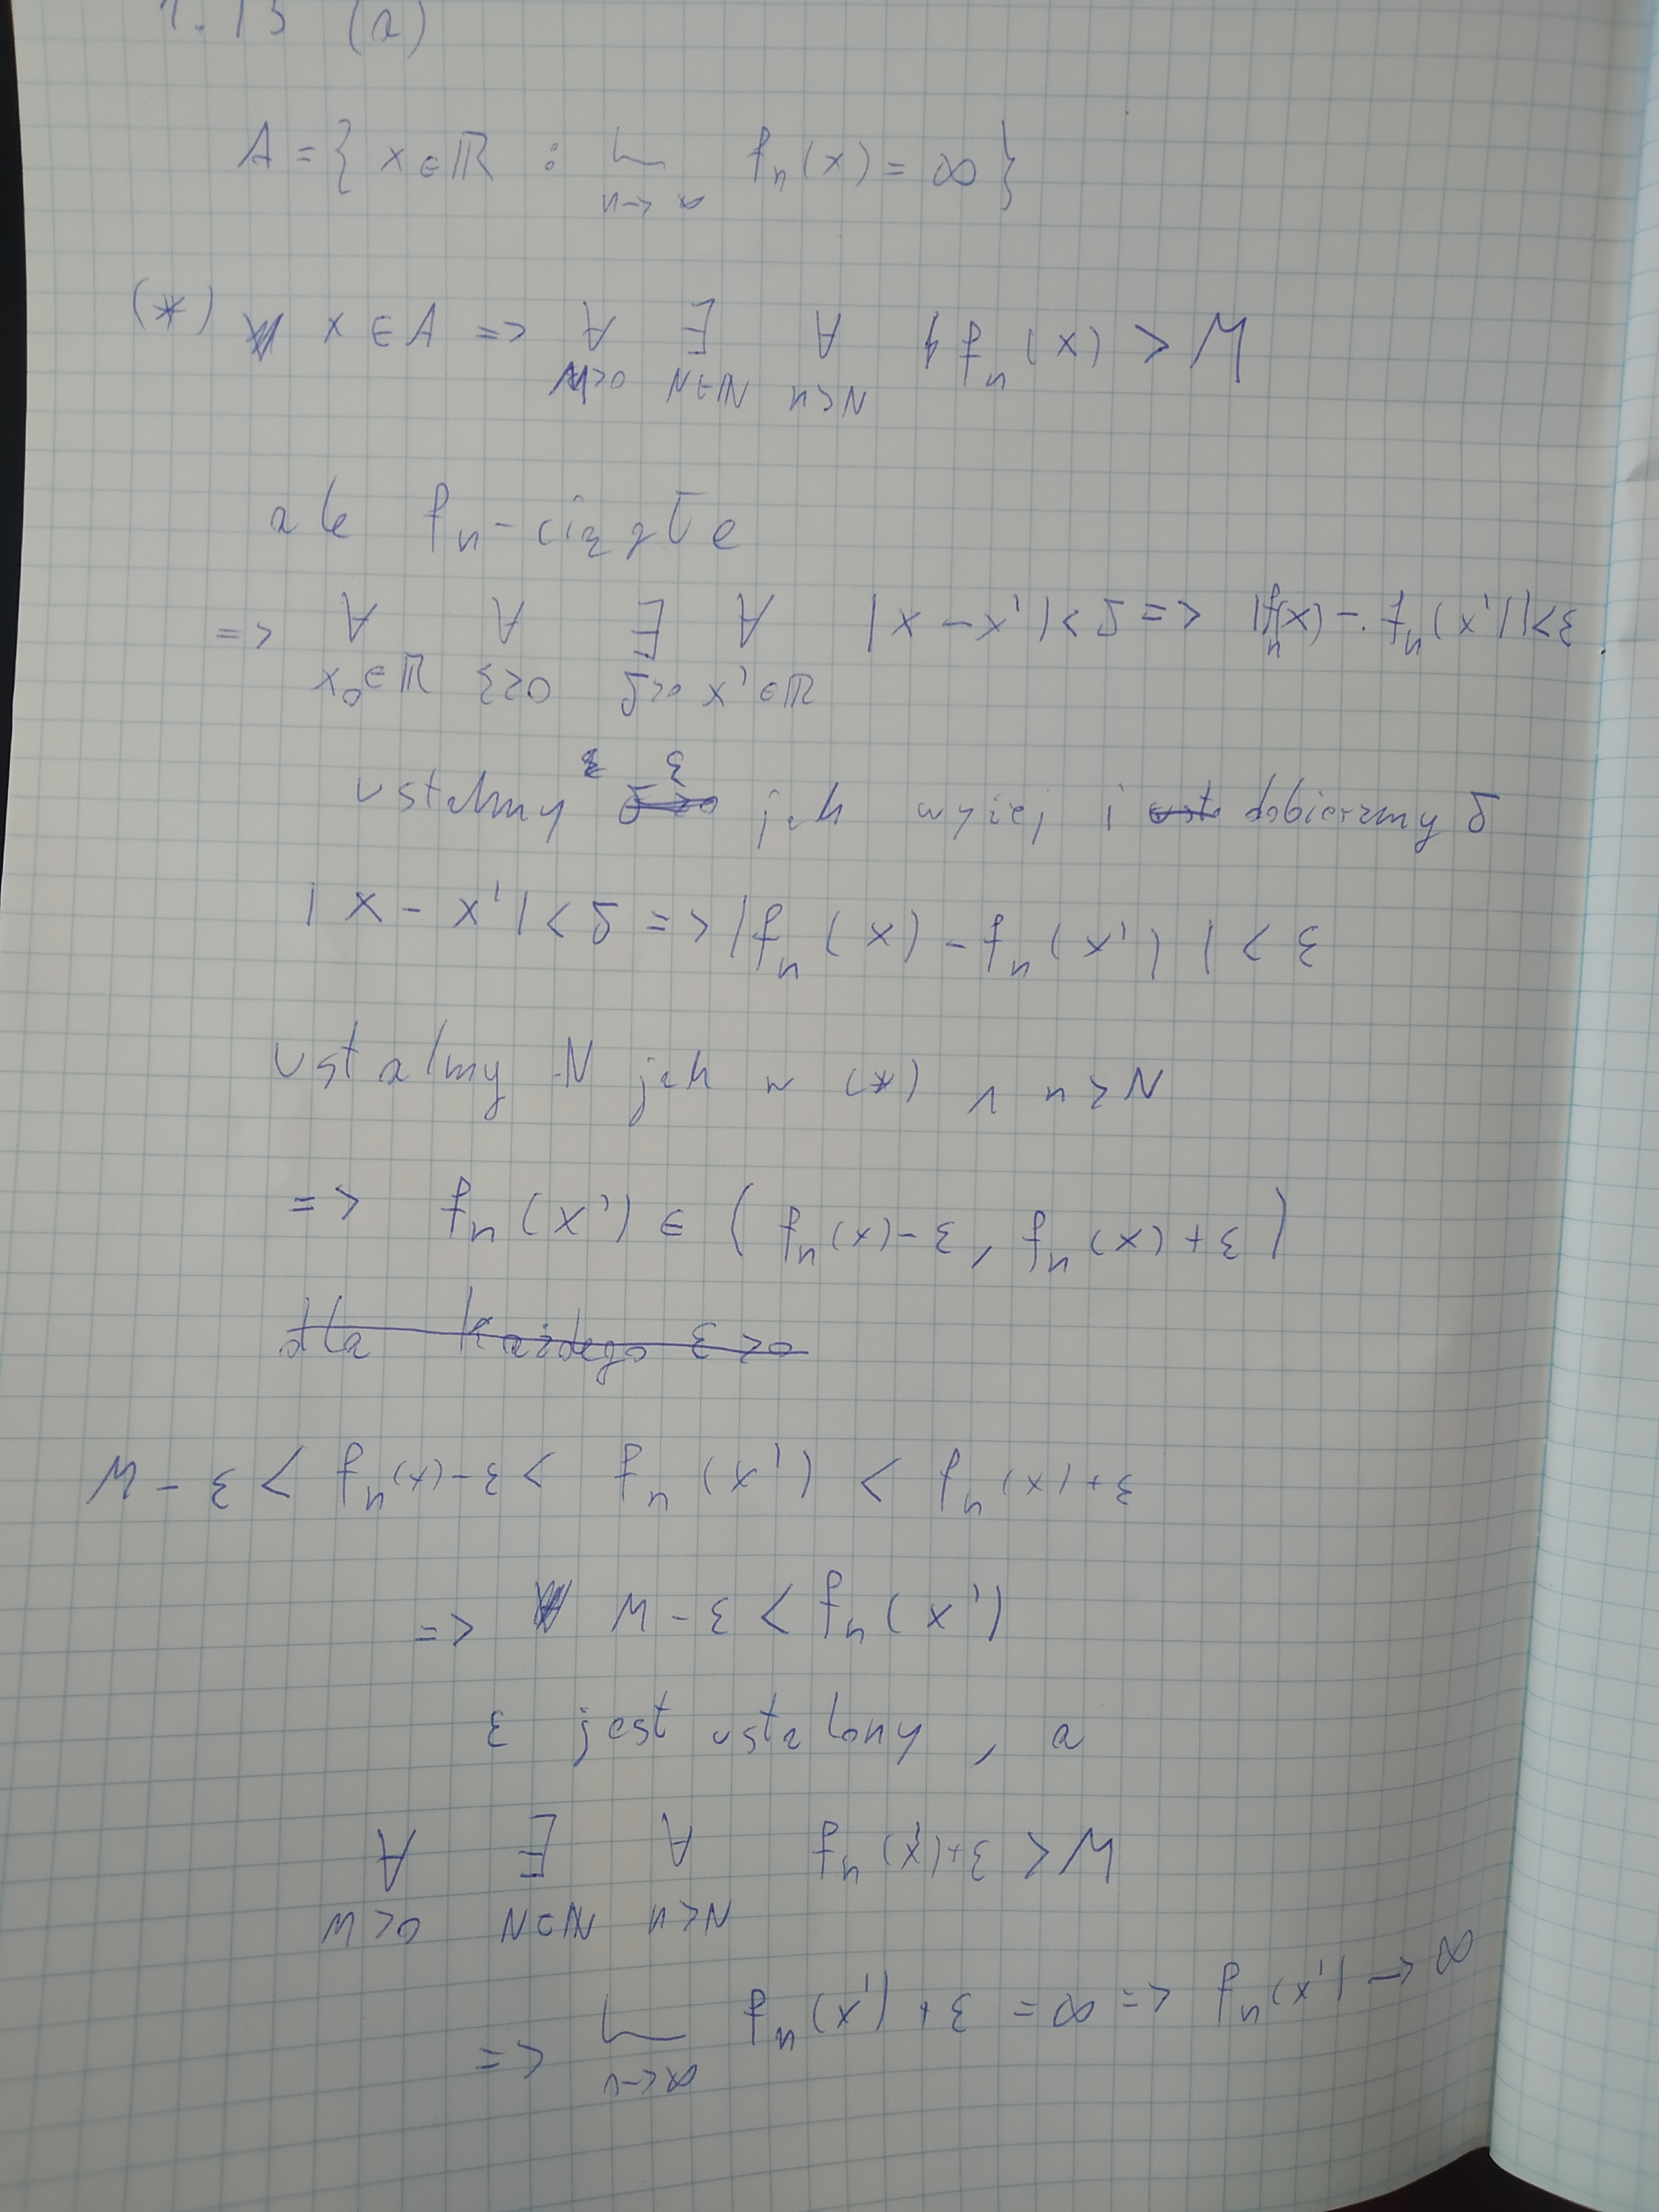 1.13 (a)
A = { x ∈ ℝ : lim n→∞ fₙ(x) = ∞ }
(*) x ∈ A => ∀ M>0 ∃ N∈ℕ ∀ n>N fₙ(x) > M
ale fₙ - ciągłe
=> ∀ x₀∈ℝ ∀ ε>0 ∃ δ>0 ∀ x'∈ℝ |x - x'| < δ => |fₙ(x) - fₙ(x')| < ε
ustalmy ε jak wyżej i dobierzmy δ
|x - x'| < δ => |fₙ(x) - fₙ(x')| < ε
ustalmy N jak w (*) ∧ n > N
=> fₙ(x') ∈ ( fₙ(x) - ε, fₙ(x) + ε )
dla każdego ε > 0
M - ε < fₙ(x) - ε < fₙ(x') < fₙ(x) + ε
=> M - ε < fₙ(x')
ε jest ustalony, a
∀ M>0 ∃ N∈ℕ ∀ n>N fₙ(x') + ε > M
=> lim n→∞ fₙ(x') + ε = ∞ => fₙ(x') → ∞